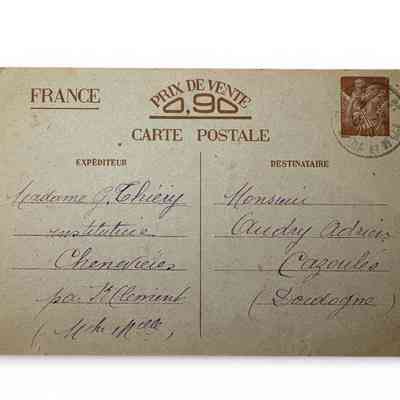 FRANCE
PRIX DE VENTE
0,90
CARTE POSTALE
EXPÉDITEUR
Madame G. Thiéry
institutrice
Chenevières
par St Clément
(Mthe Mlle)
DESTINATAIRE
Monsieur
Audry Adrien
Cazoulès
(Dordogne)